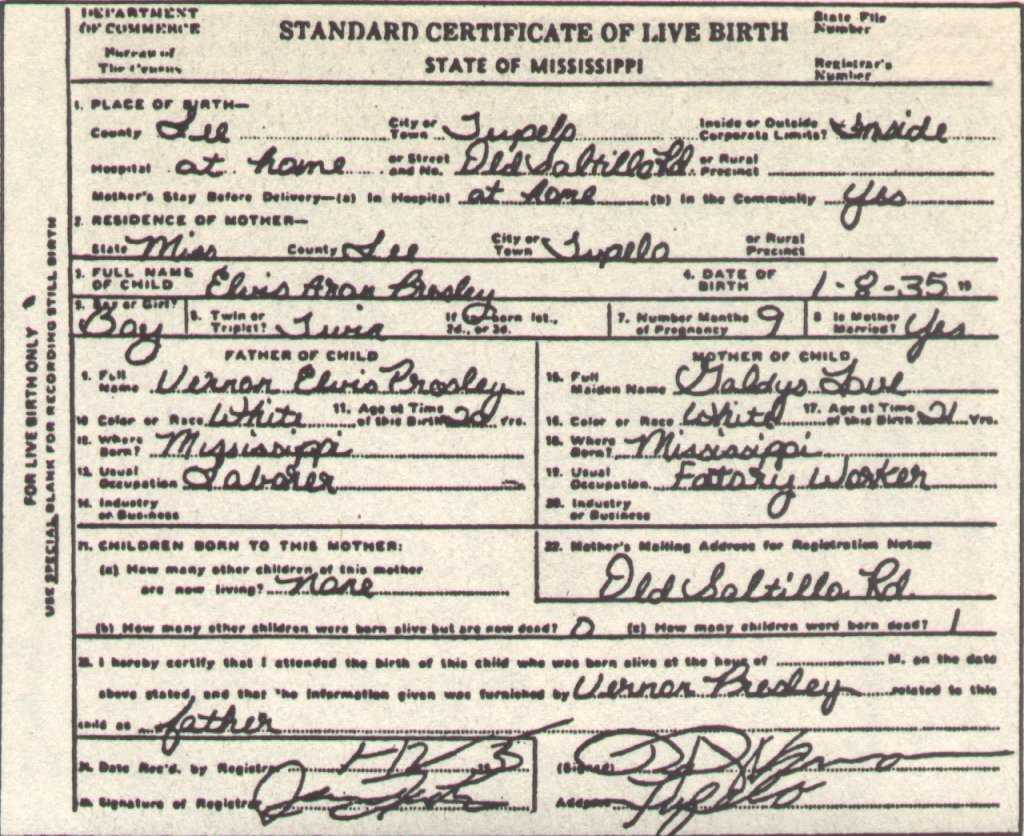 DEPARTMENT OF COMMERCE
Bureau of The Census
STANDARD CERTIFICATE OF LIVE BIRTH
STATE OF MISSISSIPPI
State File Number
Registrar's Number
FOR LIVE BIRTH ONLY
USE SPECIAL BLANK FOR RECORDING STILL BIRTH
1. PLACE OF BIRTH—
County Lee City or Town Tupelo Inside or Outside Corporate Limits? Inside
Hospital at home or Street and No. Old Saltillo Rd. or Rural Precinct
Mother's Stay Before Delivery—(a) In Hospital at home (b) In the Community Yes
2. RESIDENCE OF MOTHER—
State Miss County Lee City or Town Tupelo or Rural Precinct
3. FULL NAME OF CHILD Elvis Aron Presley 4. DATE OF BIRTH 1-8-35 19
5. Boy or Girl? Boy 6. Twin or Triplet? Twin If born 1st., 2d., or 3d. 7. Number Months of Pregnancy 9 8 Is Mother Married? Yes
FATHER OF CHILD
9. Full Name Vernon Elvis Presley
10 Color or Race White 11. Age at Time of this Birth 20 Yrs.
12. Where Born? Mississippi
13. Usual Occupation Laborer
14. Industry or Business
MOTHER OF CHILD
15. Full Maiden Name Galdys Love
16. Color or Race White 17. Age at Time of this Birth 21 Yrs.
18. Where Born? Mississippi
19. Usual Occupation Fattary Worker
20. Industry or Business
21. CHILDREN BORN TO THIS MOTHER:
(a) How many other children of this mother
are now living? None
22. Mother's Mailing Address for Registration Notice
Old Saltillo Rd.
(b) How many other children were born alive but are now dead? 0 (c) How many children were born dead? 1
23. I hereby certify that I attended the birth of this child who was born alive at the hour of M. on the date
above stated, and that the information given was furnished by Vernon Presley related to this
child as father
24. Date Rec'd. by Registrar
(Signed)
25. Signature of Registrar
Address Tupelo